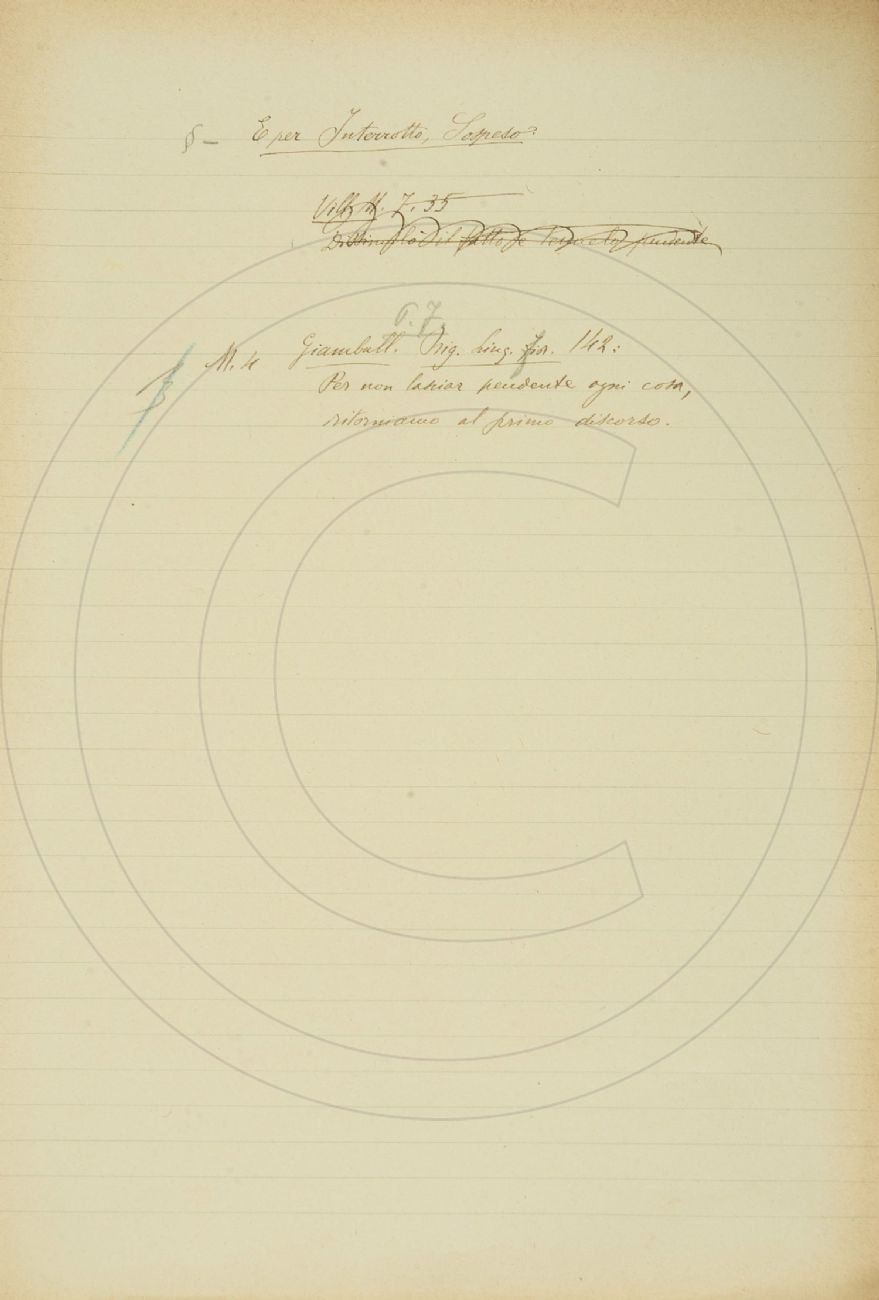 § — E per Interrotto, Sospeso:
Vill. M. 7. 35
Dissimulò il fatto e pendente
M. 4 Giambull. Orig. Ling. fior. 142:
Per non lasciar pendente ogni cosa,
ritorniamo al primo discorso.